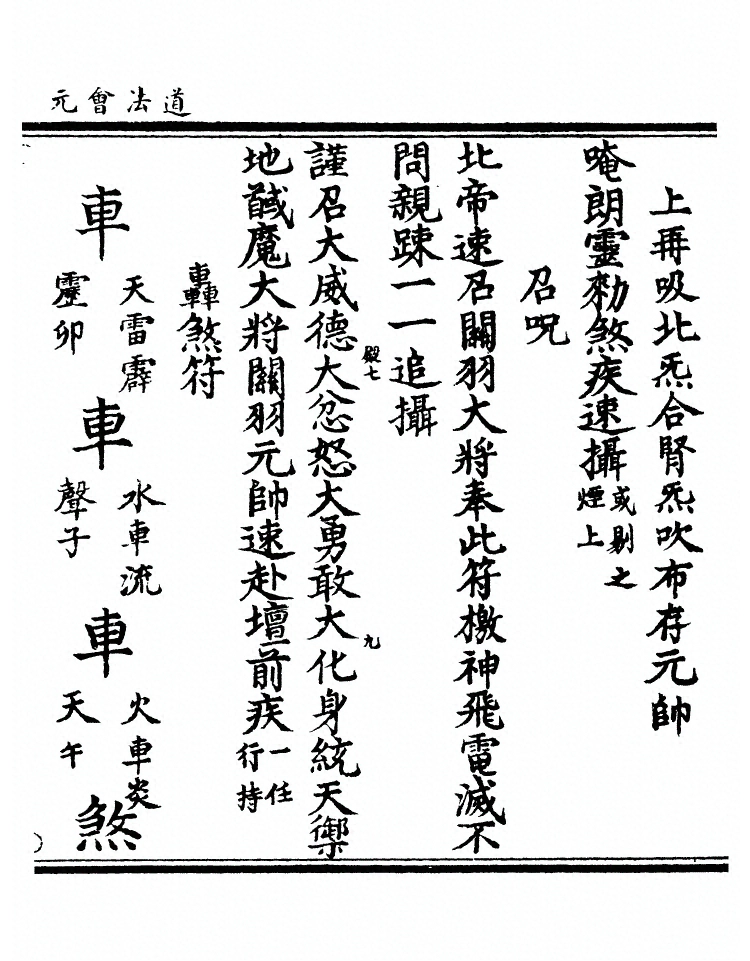 道法會元
上再吸北炁合腎炁吹布存元帥
唵朗靈勑煞疾速攝或剔之煙上
召呪
北帝速召關羽大將奉此符檄神飛電滅不
問親踈一一追攝
謹召大威德大忿怒大勇敢大化身統天禦
地馘魔大將關羽元帥速赴壇前疾一任行持
轟煞符
車天雷霹靂卯車水車流聲子車火車炎天午煞